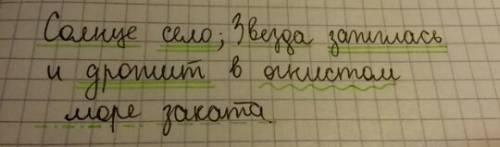 Солнце село; Звезда зажглась
и дрожит в огнистом
море заката